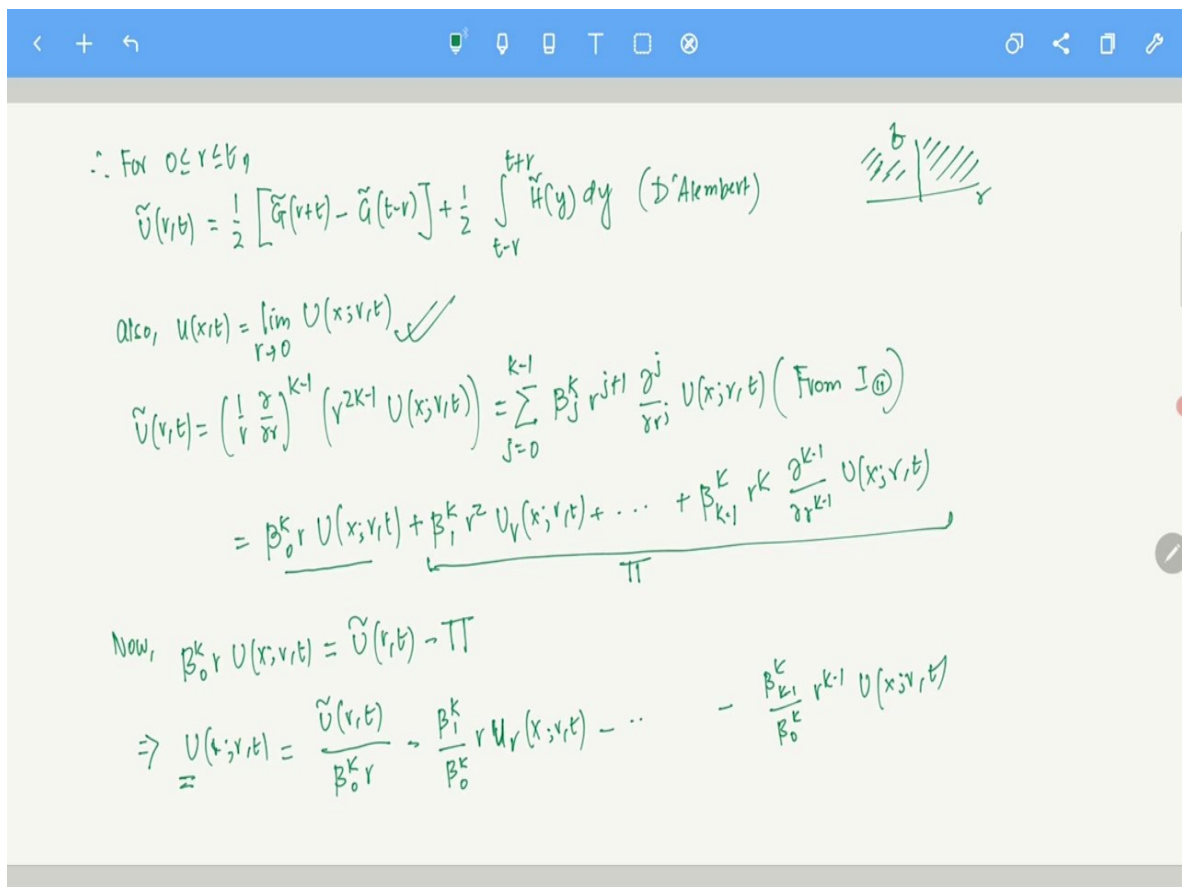 T
∴ For 0≤r≤t,
Ũ(r,t) = 1/2 [G̃(r+t) - G̃(t-r)] + 1/2 ∫_{t-r}^{t+r} H̃(y) dy (D'Alembert)
t
r
Also, u(x,t) = lim_{r→0} U(x;r,t) ✓
Ũ(r,t) = (1/r ∂/∂r)^{k-1} (r^{2k-1} U(x;r,t)) = ∑_{j=0}^{k-1} β_j^k r^{j+1} ∂^j/∂r^j U(x;r,t) (From I (ii))
= β_0^k r U(x;r,t) + β_1^k r^2 U_r(x;r,t) + ... + β_{k-1}^k r^k ∂^{k-1}/∂r^{k-1} U(x;r,t)
II
Now, β_0^k r U(x;r,t) = Ũ(r,t) - II
⇒ U(x;r,t) = Ũ(r,t)/β_0^k r - β_1^k/β_0^k r U_r(x;r,t) - .. - β_{k-1}^k/β_0^k r^{k-1} U(x;r,t)